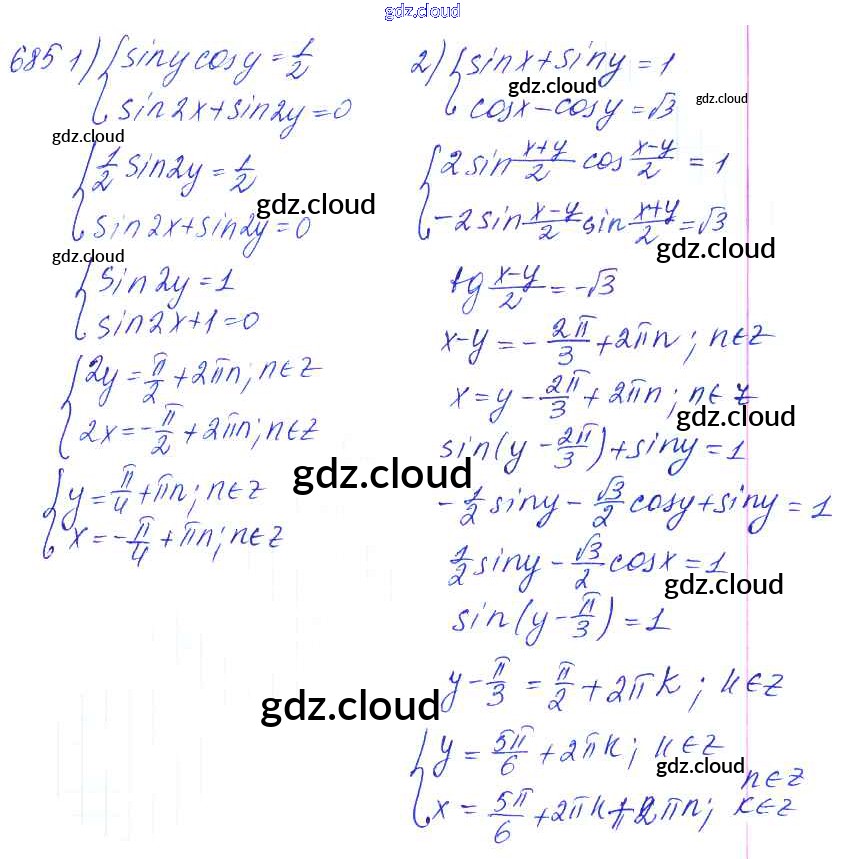 gdz.cloud
685 1) { sin y cos y = 1/2
sin 2x + sin 2y = 0
gdz.cloud
{ 1/2 sin 2y = 1/2
gdz.cloud
sin 2x + sin 2y = 0
gdz.cloud
{ sin 2y = 1
sin 2x + 1 = 0
{ 2y = π/2 + 2πn; n∈Z
2x = -π/2 + 2πn; n∈Z
gdz.cloud
{ y = π/4 + πn; n∈Z
x = -π/4 + πn; n∈Z
gdz.cloud
2) { sin x + sin y = 1
gdz.cloud
gdz.cloud
cos x - cos y = √3
{ 2 sin (x+y)/2 cos (x-y)/2 = 1
-2 sin (x-y)/2 sin (x+y)/2 = √3
gdz.cloud
tg (x-y)/2 = -√3
x - y = - 2π/3 + 2πn; n∈Z
x = y - 2π/3 + 2πn; n∈Z
gdz.cloud
sin(y - 2π/3) + sin y = 1
-1/2 sin y - √3/2 cos y + sin y = 1
1/2 sin y - √3/2 cos x = 1
gdz.cloud
sin(y - π/3) = 1
y - π/3 = π/2 + 2πk; k∈Z
{ y = 5π/6 + 2πk; k∈Z
gdz.cloud
n∈Z
x = 5π/6 + 2πk + 2πn; k∈Z